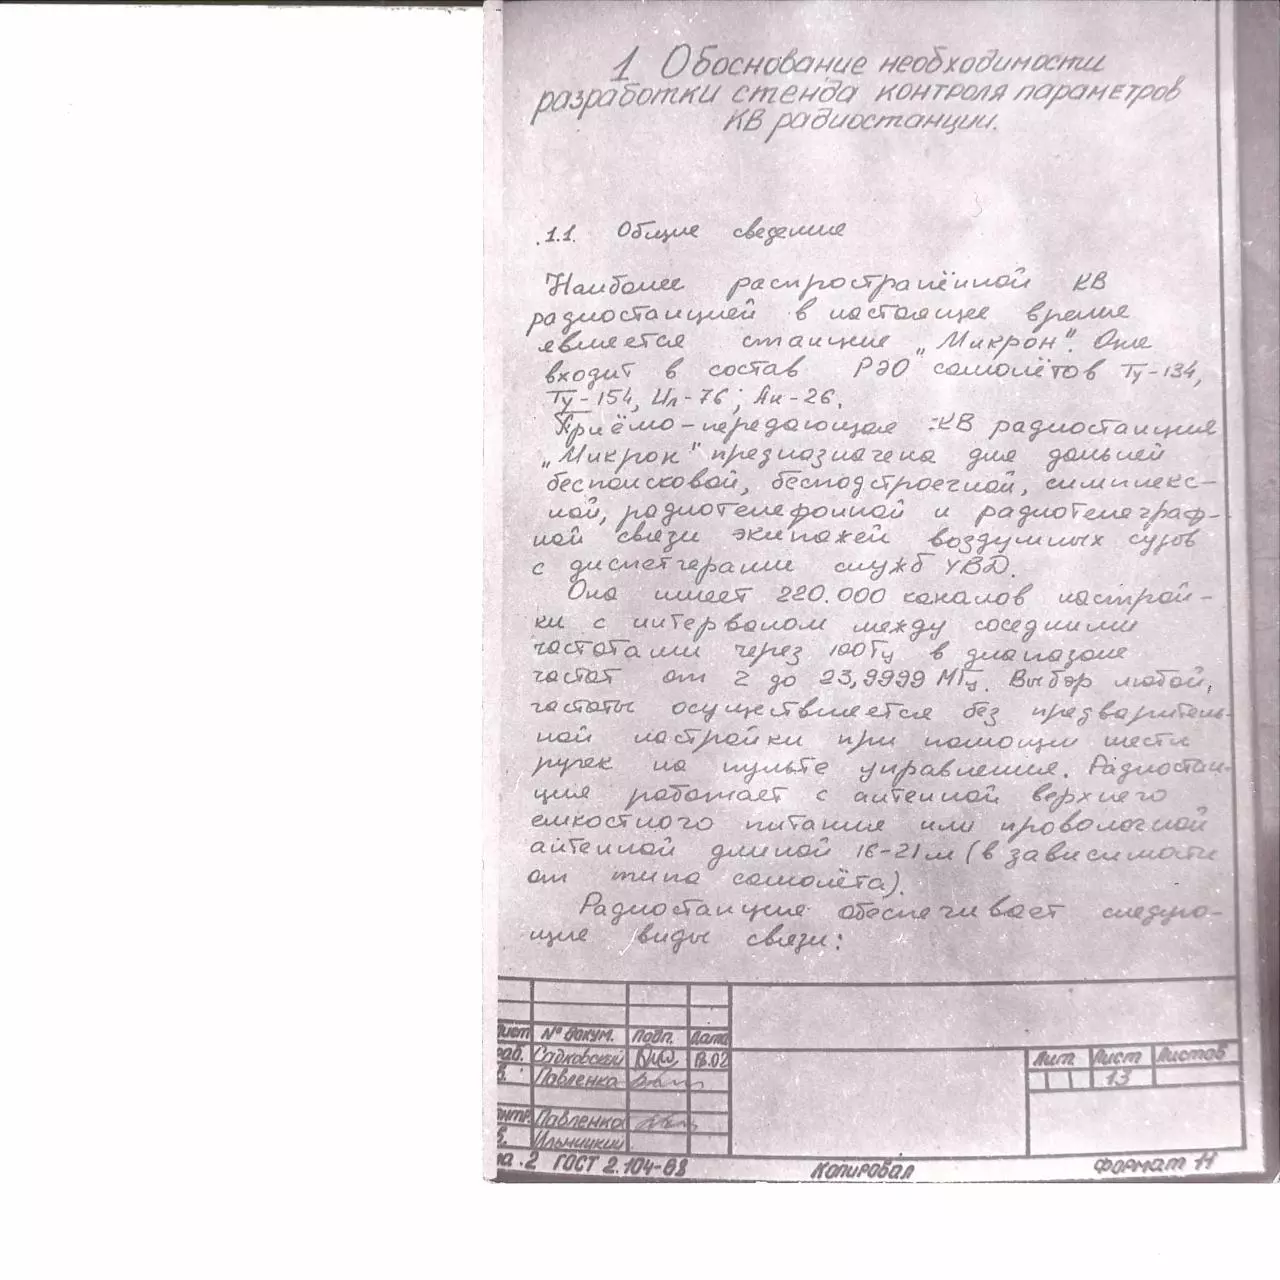 1 Обоснование необходимости
разработки стенда контроля параметров
КВ радиостанции.
1.1. Общие сведения
Наиболее распространённой КВ
радиостанцией в настоящее время
является станция „Микрон". Она
входит в состав РЭО самолётов Ту-134,
Ту-154, Ил-76; Ан-26.
Приёмо-передающая КВ радиостанция
„Микрон" предназначена для дальней
беспоисковой, бесподстроечной, симплекс-
ной, радиотелефонной и радиотелеграф-
ной связи экипажей воздушных судов
с диспетчерами служб УВД.
Она имеет 220.000 каналов настрой-
ки с интервалом между соседними
частотами через 100Гц в диапазоне
частот от 2 до 23,9999 МГц. Выбор любой
частоты осуществляется без предваритель-
ной настройки при помощи шести
ручек на пульте управления. Радиостан-
ция работает с антенной верхнего
емкостного питания или проволочной
антенной длиной 16-21м (в зависимости
от типа самолёта).
Радиостанция обеспечивает следую-
щие виды связи:
лист № докум. Подп. Дата
раб. Садковский 18.02 Лит. Лист Листов
в. Павленко 13
контр. Павленко
в. Ильницкий
ма 2 ГОСТ 2.104-68 Копировал Формат 11